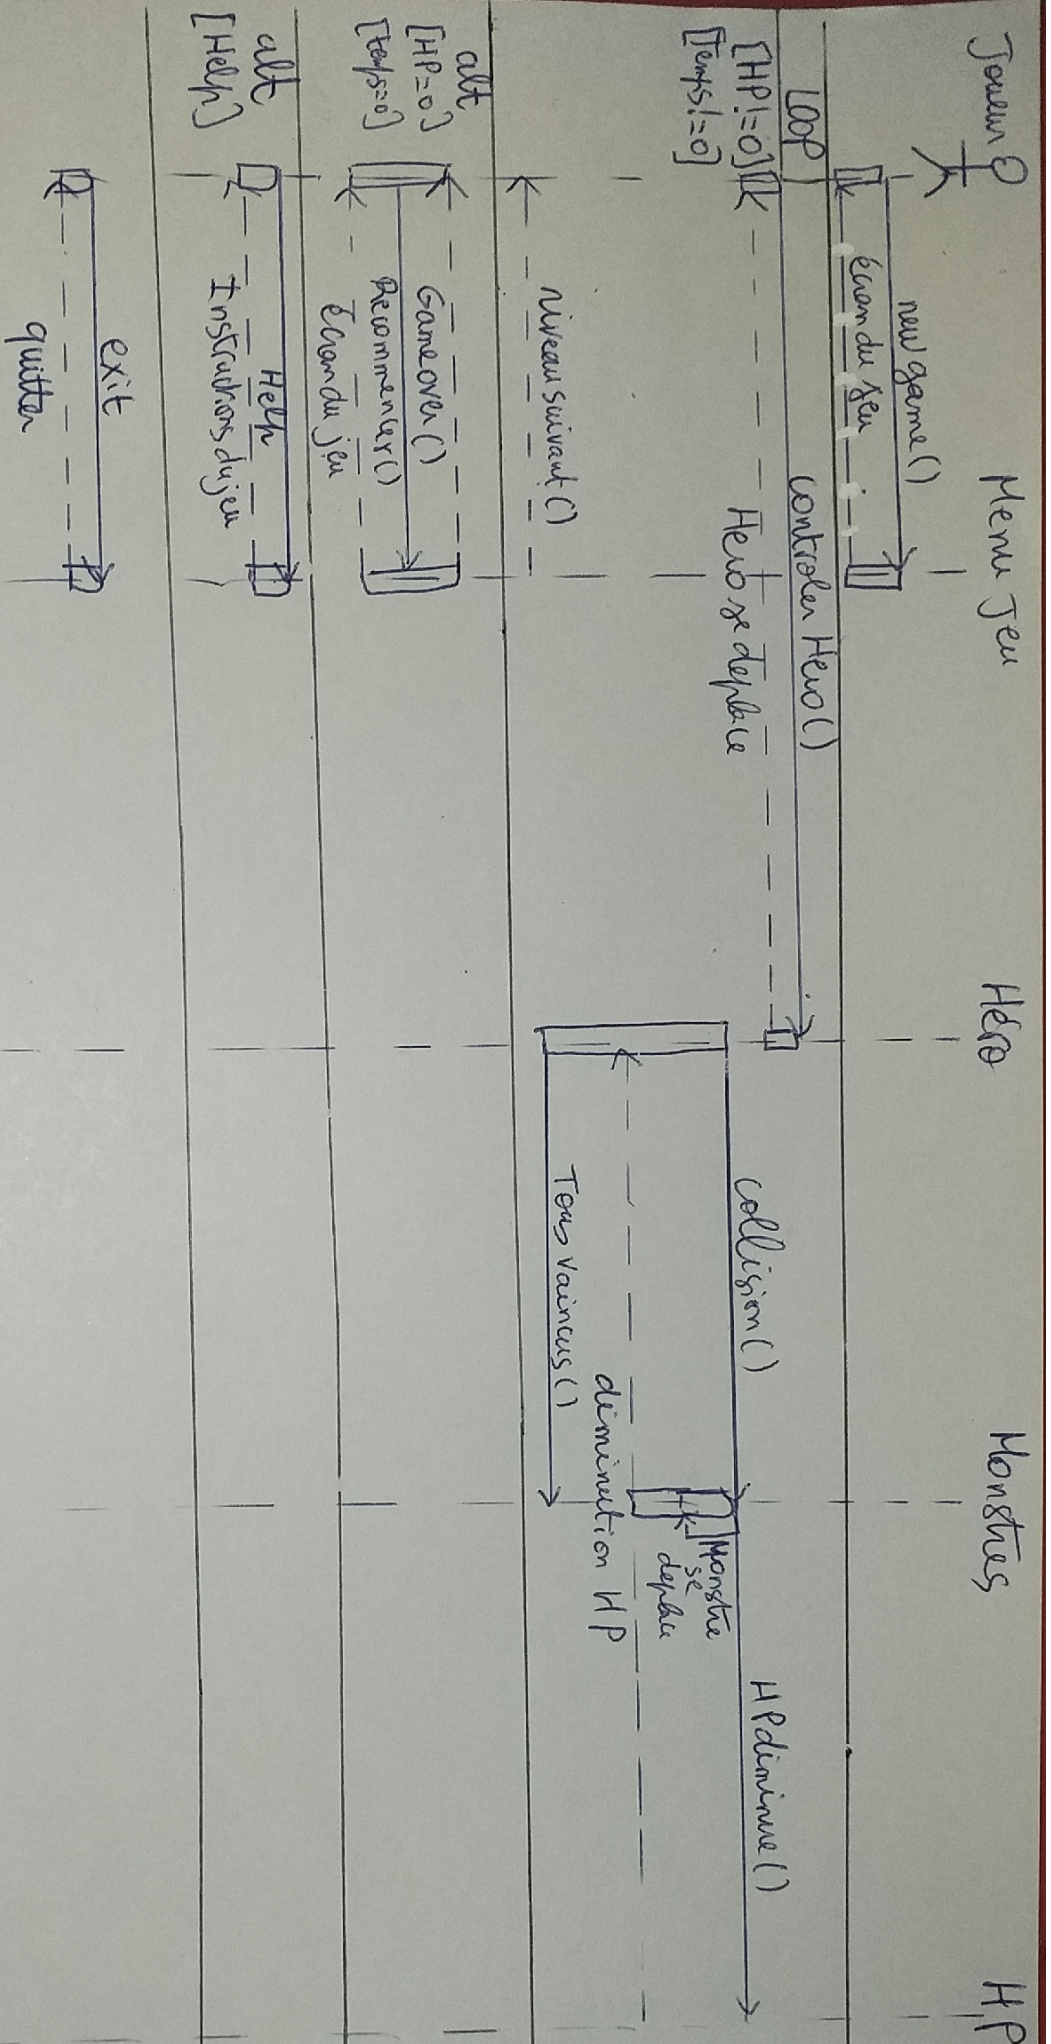 Joueur
Menu Jeu
Héro
Monstres
HP
new game()
écran du jeu
LOOP
[HP!=0]
[Temps!=0]
controler Hero()
Hero se deplace
collision()
HPdiminue()
Monstre
se
deplace
diminution HP
Tous vaincus()
niveau suivant()
alt
[HP=0]
[temps=0]
Gameover()
Recommencer()
Écran du jeu
alt
[Help]
Help
Instructions du jeu
exit
quitter